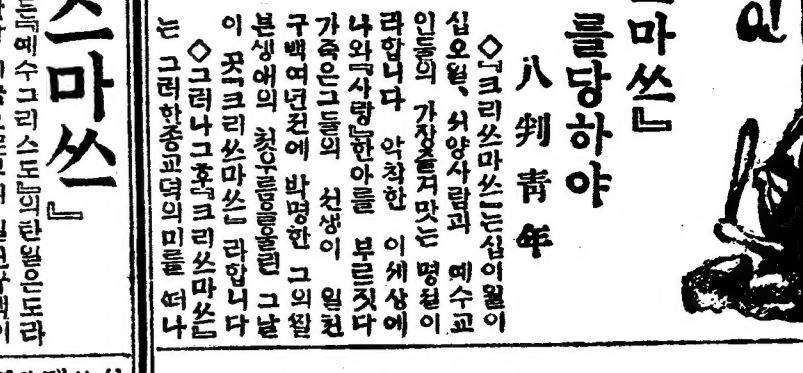 마쓰』
를당하야
八判靑年
◇『크리쓰마쓰』는십이월이
십오일, 서양사람과 예수교
인들의 가장즐겨맛는 명절이
라합니다 악착한 이세상에
나와『사랑』한아를 부르짓다
가죽은그들의 선생이 일천
구백여년전에 박명한 그의짤
븐생애의 첫우름을울린 그날
이 곳『크리쓰마쓰』라합니다
◇그러나그후『크리쓰마쓰』
는 그러한종교뎍의미를 떠나
스마쓰』
는『예수그리스도』의탄일은도라